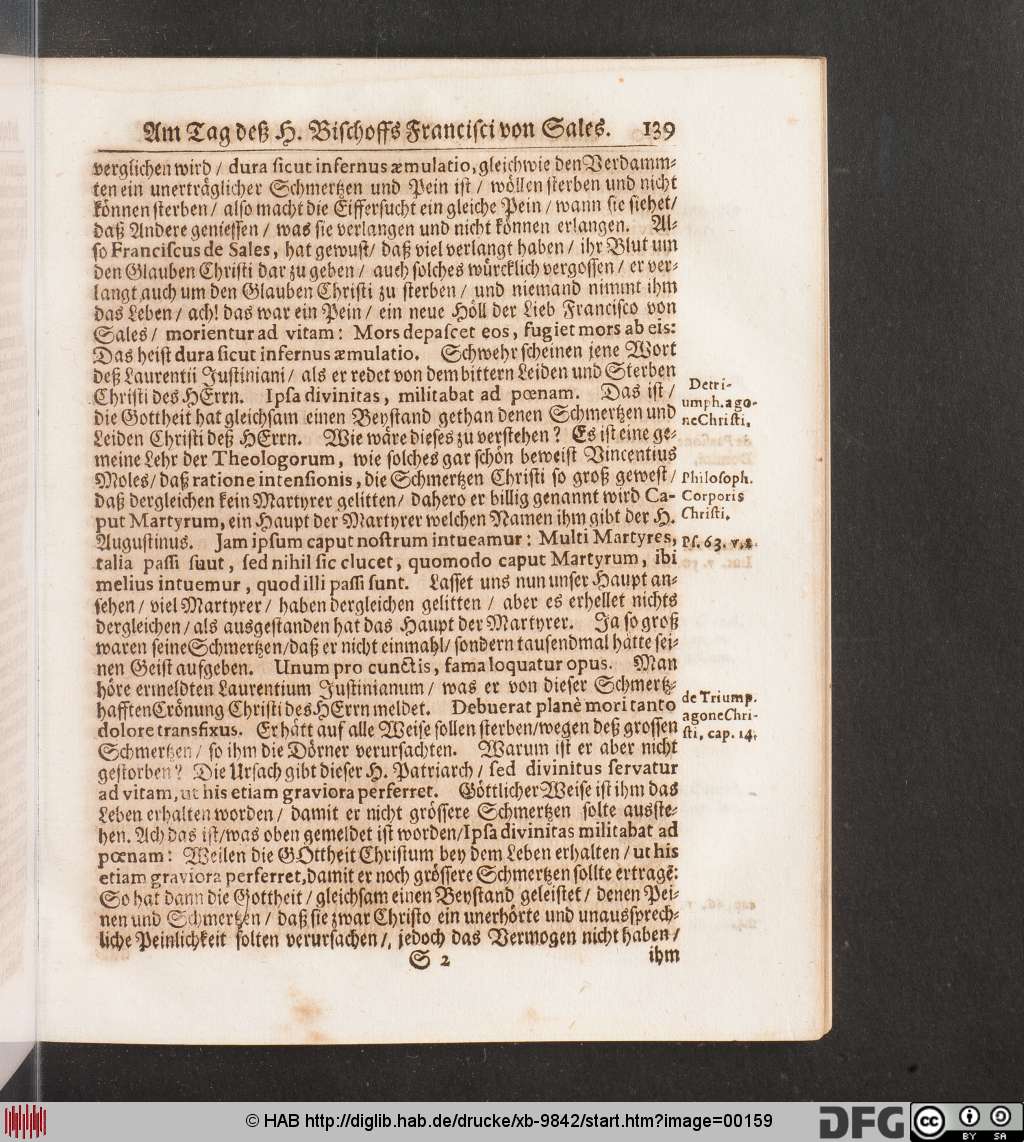 Am Tag deß H. Bischoffs Francisci von Sales. 139
verglichen wird / dura sicut infernus æmulatio, gleichwie den Verdamm-
ten ein unerträglicher Schmertzen und Pein ist / wöllen sterben und nicht
können sterben / also macht die Eiffersucht ein gleiche Pein / wann sie siehet/
daß Andere geniessen / was sie verlangen und nicht können erlangen. Al-
so Franciscus de Sales, hat gewust/ daß viel verlangt haben / ihr Blut um
den Glauben Christi dar zu geben / auch solches würcklich vergossen / er ver-
langt auch um den Glauben Christi zu sterben / und niemand nimmt ihm
das Leben / ach! das war ein Pein / ein neue Höll der Lieb Francisco von
Sales / morientur ad vitam: Mors depascet eos, fugiet mors ab eis:
Das heist dura sicut infernus æmulatio. Schwehr scheinen jene Wort
deß Laurentii Justiniani / als er redet von dem bittern Leiden und Sterben
Christi des HErrn. Ipsa divinitas, militabat ad pœnam. Das ist /
die Gottheit hat gleichsam einen Beystand gethan denen Schmertzen und
Leiden Christi deß HErrn. Wie wäre dieses zu verstehen? Es ist eine ge-
meine Lehr der Theologorum, wie solches gar schön beweist Vincentius
Moles/ daß ratione intensionis, die Schmertzen Christi so groß gewest /
daß dergleichen kein Martyrer gelitten / dahero er billig genannt wird Ca-
put Martyrum, ein Haupt der Martyrer welchen Namen ihm gibt der H.
Augustinus. Jam ipsum caput nostrum intueamur: Multi Martyres,
talia passi suut, sed nihil sic clucet, quomodo caput Martyrum, ibi
melius intuemur, quod illi passi sunt. Lasset uns nun unser Haupt an-
sehen / viel Martyrer / haben dergleichen gelitten / aber es erhellet nichts
dergleichen / als ausgestanden hat das Haupt der Martyrer. Ja so groß
waren seine Schmertzen/daß er nicht einmahl/ sondern tausendmal hätte sei-
nen Geist aufgeben. Unum pro cunctis, fama loquatur opus. Man
höre ermeldten Laurentium Justinianum / was er von dieser Schmertz-
hafften Crönung Christi des HErrn meldet. Debuerat planè mori tanto
dolore transfixus. Er hätt auf alle Weise sollen sterben/wegen deß grossen
Schmertzen / so ihm die Dörner verursachten. Warum ist er aber nicht
gestorben? Die Ursach gibt dieser H. Patriarch / sed divinitus servatur
ad vitam, ut his etiam graviora perferret. Göttlicher Weise ist ihm das
Leben erhalten worden / damit er nicht grössere Schmertzen solte ausste-
hen. Ach das ist/was oben gemeldet ist worden/Ipsa divinitas militabat ad
pœnam: Weilen die GOttheit Christum bey dem Leben erhalten / ut his
etiam graviora perferret, damit er noch grössere Schmertzen sollte ertragē:
So hat dann die Gottheit / gleichsam einen Beystand geleistet / denen Pei-
nen und Schmertzen / daß sie zwar Christo ein unerhörte und unaussprech-
liche Peinlichkeit solten verursachen /, jedoch das Vermogen nicht haben /
S 2 ihm
De tri-
umph. ago-
ne Christi.
Philosoph.
Corporis
Christi.
Ps. 63. v. 2.
de Triump.
agone Chri-
sti, cap. 14.
© HAB http://diglib.hab.de/drucke/xb-9842/start.htm?image=00159
DFG
cc BY SA